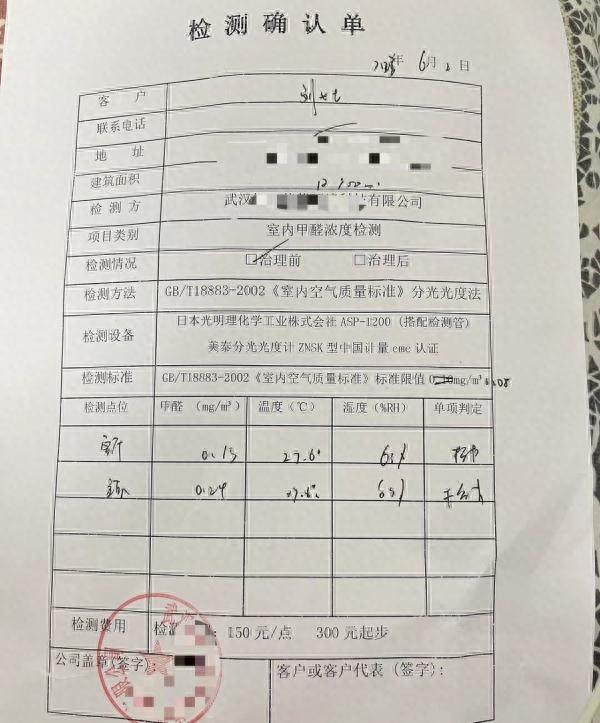 检测确认单
年 6月2日
客 户 刘女士
联系电话
地 址
建筑面积
检测方 武汉 有限公司
项目类别 室内甲醛浓度检测
检测情况 ☑治理前 □治理后
检测方法 GB/T18883-2002《室内空气质量标准》分光光度法
检测设备 日本光明理化学工业株式会社 ASP-1200（搭配检测管）
美泰分光光度计 ZNSK 型中国计量 cmc 认证
检测标准 GB/T18883-2002《室内空气质量标准》标准限值 0.10mg/m³ 0.08
检测点位 甲醛（mg/m³） 温度（℃） 湿度（%RH） 单项判定
0.13 27.6°
0.24 27.6°
检测费用 检测 ：150元/点 300元起步
公司盖章(签字): 客户或客户代表（签字）: